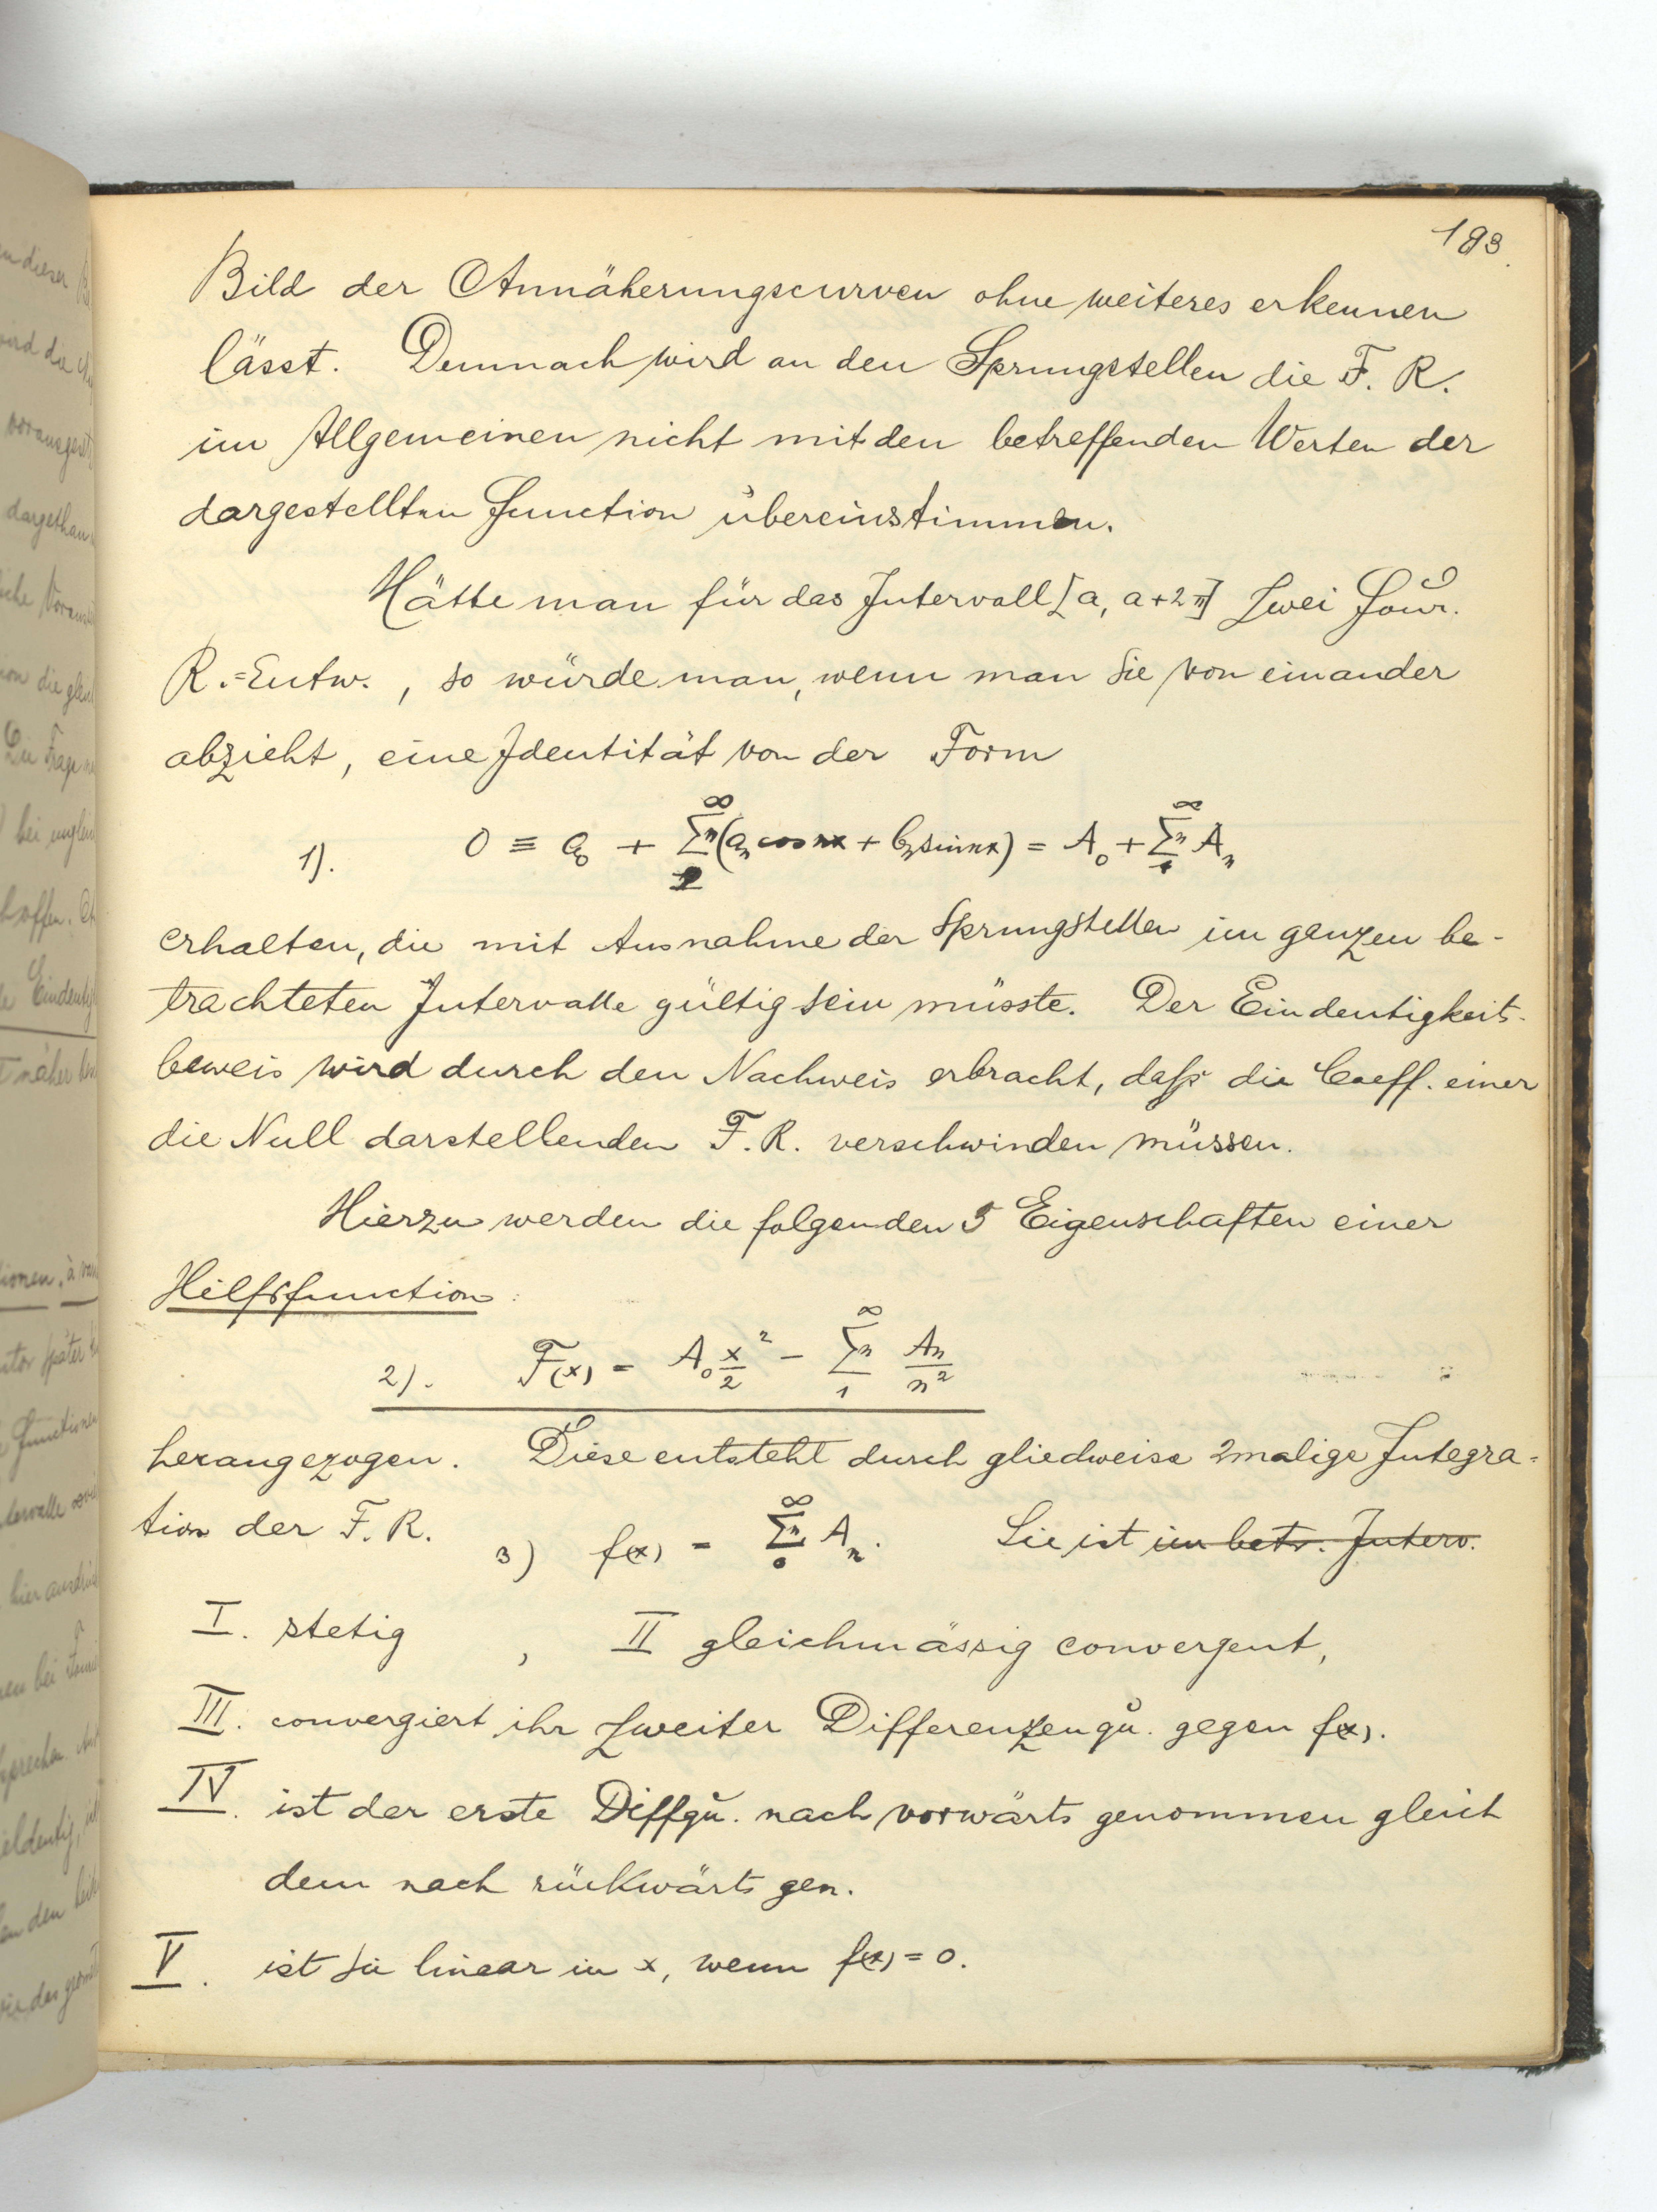 193.
Bild der Annäherungscurven ohne weiteres erkennen
lässt. Demnach wird an den Sprungstellen die F. R.
im Allgemeinen nicht mit den betreffenden Werten der
dargestellten Function übereinstimmen.
Hätte man für das Intervall [a, a+2π] zwei Four.
R.=Entw., so würde man, wenn man sie von einander
abzieht, eine Identität von der Form
1). 0 ≡ a₀ + ∑ₙ₁^∞ (aₙ cos nx + bₙ sin nx) = A₀ + ∑ₙ₁^∞ Aₙ
erhalten, die mit Ausnahme der Sprungstellen im ganzen be-
trachteten Intervalle gültig sein müsste. Der Eindeutigkeits-
beweis wird durch den Nachweis erbracht, daß die Coeff. einer
die Null darstellenden F. R. verschwinden müssen.
Hierzu werden die folgenden 5 Eigenschaften einer
Hilfsfunction:
2). F(x) = A₀ x²/2 − ∑ₙ₁^∞ Aₙ/n²
herangezogen. Diese entsteht durch gliedweise 2malige Integra=
tion der F. R. 3) f(x) = ∑ₙ₀^∞ Aₙ. Sie ist im betr. Interv.
I. stetig, II gleichmässig convergent,
III. convergiert ihr zweiter Differenzenqu. gegen f(x).
IV. ist der erste Diffqu. nach vorwärts genommen gleich
dem nach rückwärts gen.
V. ist sie linear in x, wenn f(x) = 0.